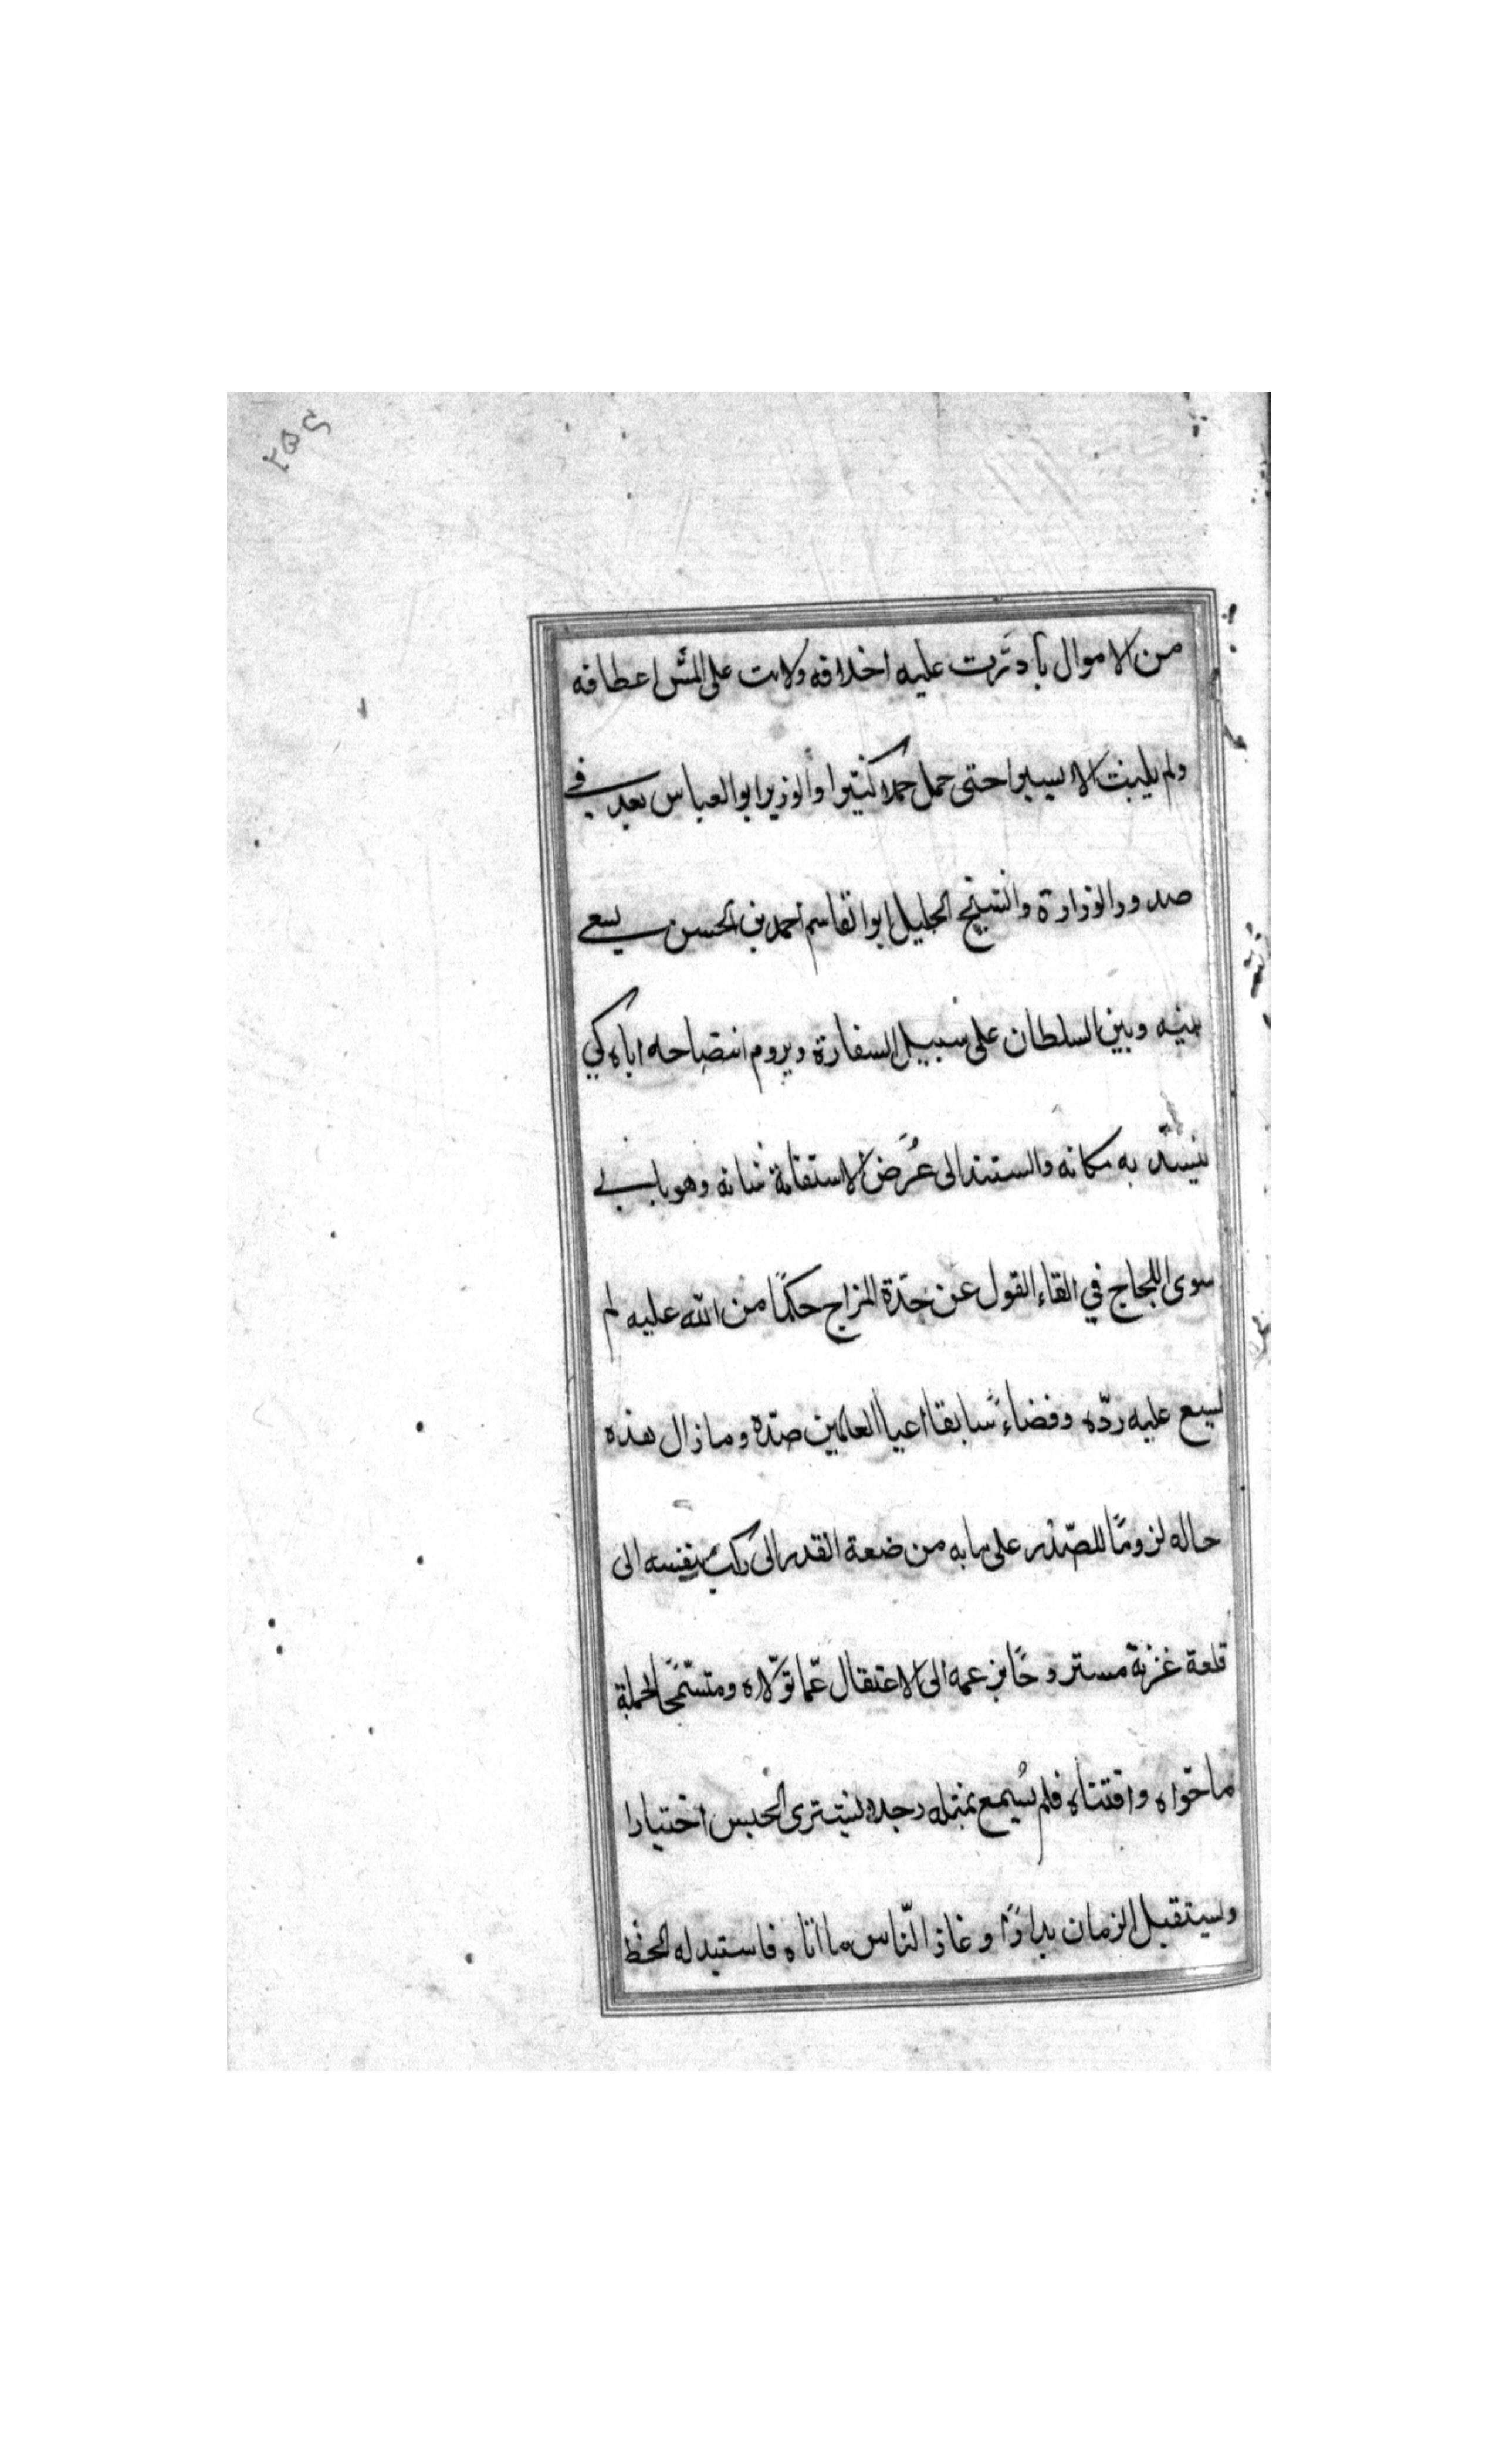 ۲۵۶
من الاموال بأ دثرت عليه اخلاقه ولانت على المسّ اعطافه
ولم يلبث الا يسيرا حتى حمل حملا كثيرا والوزير ابو العباس بعد في
صدور الوزارة والشيخ الجليل ابو القاسم احمد بن الحسن يسعى
بينه وبين السلطان على سبيل السفارة ويروم انتصاحه اياه كي
يستدّ به مكانه والستند الى عُرض الاستقامة شانه وهو يابى
سوى اللجاج في القاء القول عن حدّة المزاج حكمًا من الله عليه لم
يسع عليه ردّه وقضاءً سابقا اعيا العالمين صدّه وما زال هذه
حاله لزومًا للصّدر على ما به من ضعة القدر الى بنفسه الى
قلعة غزنة مستروحًا بزعمه الى الاعتقال عمّا تولاه ومتسمّحًا بجملة
ما حواه واقتناه فلم يُسمع بمثله رجلا يشترى الحبس اختيارا
ويستقبل الزمان وغاظ النّاس ما اتاه فاستبدله الحظ